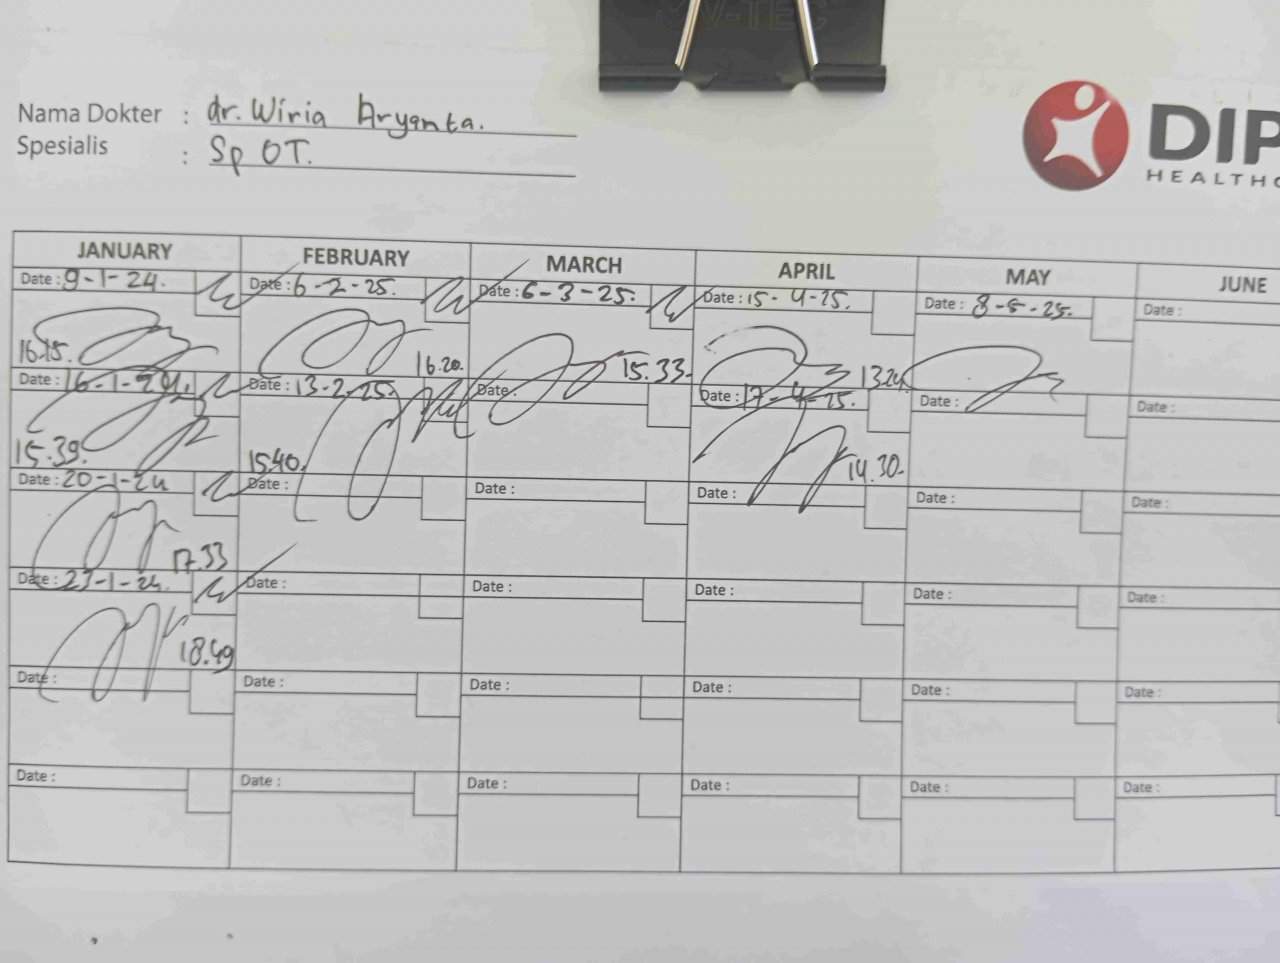 Nama Dokter : dr. Wiria Aryanta.
Spesialis : Sp OT.
DIP
HEALTHC
JANUARY FEBRUARY MARCH APRIL MAY JUNE
Date : 9-1-24. Date : 6-2-25. Date : 6-3-25. Date : 15-4-25. Date : 8-5-25. Date :
16.15. 16.20. 15.33. 13.24
Date : 16-1-24. Date : 13-2-25. Date : Date : 17-4-25. Date : Date :
15.39. 15.40. 14.30.
Date : 20-1-24 Date : Date : Date : Date : Date :
17.33
Date : 23-1-24. Date : Date : Date : Date : Date :
18.49
Date : Date : Date : Date : Date : Date :
Date : Date : Date : Date : Date : Date :